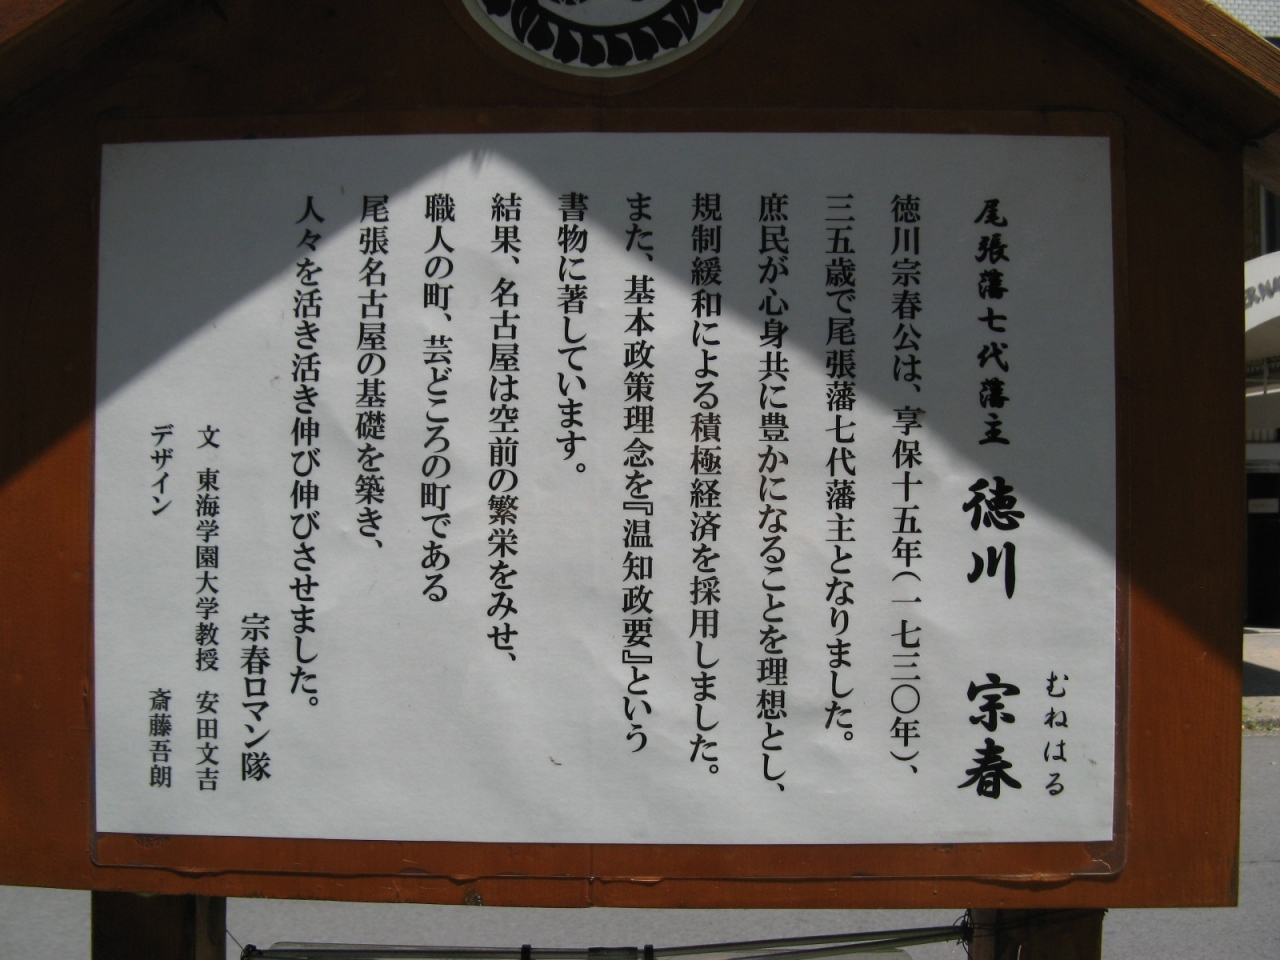 尾張藩七代藩主 徳川 宗春
むねはる
徳川宗春公は、享保十五年(一七三〇年)、
三五歳で尾張藩七代藩主となりました。
庶民が心身共に豊かになることを理想とし、
規制緩和による積極経済を採用しました。
また、基本政策理念を『温知政要』という
書物に著しています。
結果、名古屋は空前の繁栄をみせ、
職人の町、芸どころの町である
尾張名古屋の基礎を築き、
人々を活き活き伸び伸びさせました。
宗春ロマン隊
文 東海学園大学教授 安田文吉
デザイン 斎藤吾朗